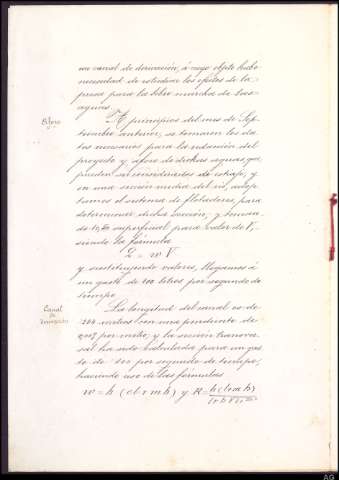 un canal de derivación, á cuyo objeto hubo
necesidad de estudiar los efectos de la
presa para la libre marcha de las
aguas.
Aforo
A principios del mes de Sep-
tiembre anterior, se tomaron los da-
tos necesarios para la redacción del
proyecto y aforo de dichas aguas que
pueden ser consideradas de estiaje, y
en una sección media del río, adop-
tamos el sistema de flotadores, para
determinar dicha sección, y toman-
do superficial para valor de V,
siendo la fórmula
V
y sustituyendo valores, llegamos á
un gasto de 100 litros por segundo de
tiempo
Canal
de
La longitud del canal es de
204 metros con una pendiente de
por metro, y la sección transver-
sal ha sido calculada para un gas-
to de 100 por segundo de tiempo,
haciendo uso de las fórmulas
w = h (b + m h) y R = h (b + m h)